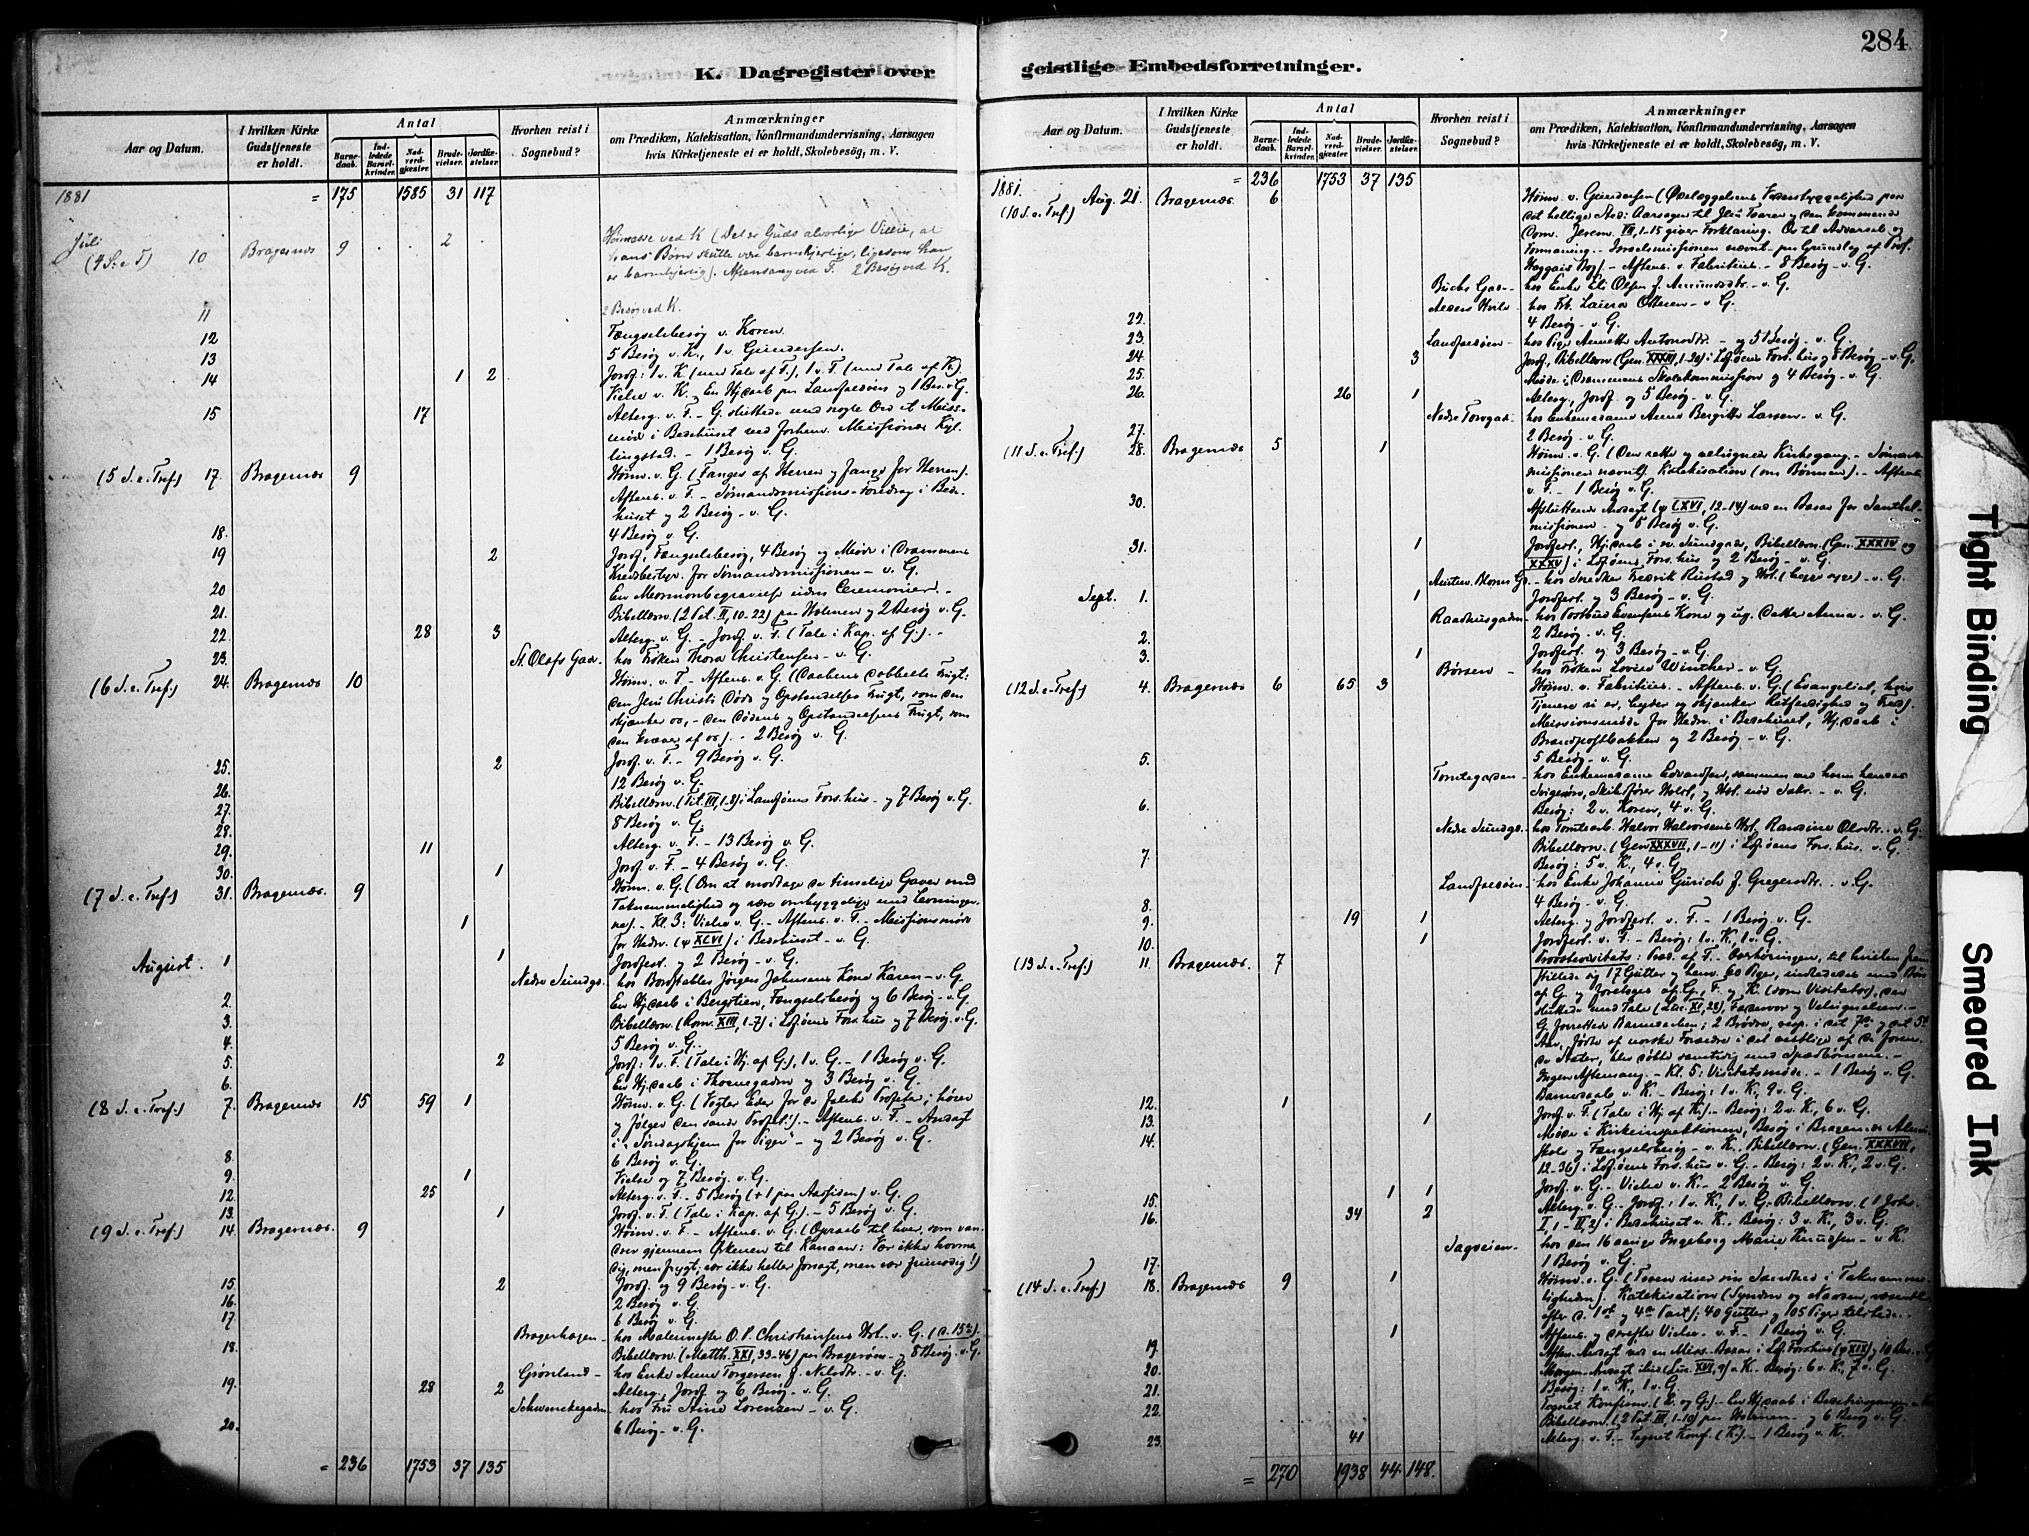 284
K. Dagregister over
geistlige Embedsforretninger.
Aar og Datum.
I hvilken Kirke Gudstjeneste er holdt.
Antal
Barnedaab.
Indledede Barselkvinder.
Nadverdgjæster
Brudevielser.
Jordfæstelser.
Hvorhen reist i Sognebud?
Anmærkninger
om Prædiken, Katekisation, Konfirmandundervisning, Aarsagen
hvis Kirketjeneste ei er holdt, Skolebesög, m. V.
1881 = 175 1585 31 117
Juli
(4 S. e. T) 10 Bragernæs 9 2 Høimesse ved K (Det er Guds alvorlige Villie, at
hans Børn skulle være barmhjertige, ligesom han
er barmhjertig). Aftensang ved F. 2 Besøg ved K.
11 2 Besøg ved K.
12 Fængselsbesøg v. Koren.
13 5 Besøg v. K., 1 v. Gundersen.
14 1 2 Jordf: 1 v. K (med Tale af F.), 1 v. F. (med Tale af K.)
Vielse v. K. En Hj.daab paa Landfaløen og 1 Bes. v. G.
15 17 Alterg. v. F. - G. sluttede med nogle Ord et Miss-
møde i Bedehuset ved Missionær
1 Besøg v. G.
(5 S. e. Tref.) 17. Bragernæs 9 Høim. v. G. (Fanges af Herren og fange for Herren).
Aftens. v. F. - Sømandsmissions-Foredrag i Bede-
huset og 2 Besøg - v. G.
18. 4 Besøg v. G.
19 2 Jordf. Fængselsbesøg, 4 Besøg og Møde i Drammens
Kredsbestyr. for Sømandsmissionen - v. G.
20 En Mormonbegravelse uden Ceremonier. -
21. Bibellæsn. (2 Pet. II, 10-22) paa Holmen og 2 Besøg v. G.
22 28 3 Alterg. v. G. - Jordf. v. F. (Tale i Kap. af G.). -
23. St. Olafs Gad. - hos Frøken Thora Christensen - v. G.
(6 S. e. Tref.) 24. Bragernæs 10 Høim. v. F. - Aftens. v. G. (Daabens dobbelte Frugt:
den Jesu Christi Døds og Opstandelses Frugt, som den
skjænker os, - den Dødens og Opstandelsens Frugt, som
den kræver af os). - 2 Besøg v. G.
25. 2 Jordf. v. F. - 9 Besøg v. G.
26. 12 Besøg v. G.
27. Bibellæsn. (Tit. III, 1-8) i Landføens Fors.hus - og 7 Besøg v. G.
28. 8 Besøg v. G.
29. 11 Alterg. v. F. - 13 Besøg v. G.
30. 1 Jordf. v. F. - 4 Besøg v. G.
(7 S. e. Tref.) 31. Bragernæs. 9 Høim. v. G. (Om at modtage de timelige Gaver med
Taknemmelighed og være omhyggelige med Levninger-
ne). - Kl. 3: Vielse v. G. - Aftens. v. F. - Missionsmøde
1
for Hedn. (ψ XCVI) i Bedehuset - v. G.
August. 1 1 Jordfest. og 2 Besøg - v. G.
Nedre Sundgd. - hos Bordstabler Jørgen Johnsens Kone Karen - v. G.
2. En Hj.daab i Bergstien, Fængselsbesøg og 6 Besøg - v. G.
3. Bibellæsn. (Rom. XIII, 1-7) i Løføens Fors.hus og 7 Besøg v. G.
4. 5 Besøg v. G.
5. 2 Jordf: 1 v. F. (Tale i Hj. af G.), 1 v. G. - 1 Besøg v. G.
6. En Hj.daab i Thornegaden og 3 Besøg v. G.
(8 S. e. Tref.) 7. Bragernæs 15 59 1 Høim. v. G. (Vogter Eder for de falske Profeter; hører
og følger den sande Profet!). - Aftens. v. F. - Andagt
i „Søndagshjem for Piger" - og 2 Besøg v. G.
8. 6 Besøg v. G.
9. 1 Vielse og 7 Besøg. v. G.
12. 25 Alterg. v. F. - 5 Besøg (+ 1 paa Aassiden) v. G.
13. 1 Jordf. v. F. (Tale i Kap. af G.). - 5 Besøg v. G.
(9 S. e. Tref.) 14. Bragernæs. 9 Høim. v. F. - Aftens. v. G. (Opraab til hver, som van-
drer gjennem Ørkenen til Kanaan: Vær ikke hovmo-
dig, men frygt; vær ikke heller forsagt, men vær frimodig!)
15 2 Jordf. og 9 Besøg - v. G.
16. 2 Besøg v. G.
17 6 Besøg v. G.
Bragerhagen - hos Malermester O. P. Christiansens Hst. v. G. (d. 15de).
18. Bibellæsn. (Matth. XXI, 33-46) paa Bragerøen - og 8 Besøg. v. G.
Grønland - hos Enke Anne Torgersen f. Nilsdtr. - v. G.
19. 28 2 Alterg., Jordf. og 6 Besøg - v. G.
Schwenckegaden - hos Fru Aline Lorentzen - v. G.
20. 6 Besøg - v. G.
= 236 1753 37 135
Aar og Datum.
I hvilken Kirke Gudstjeneste er holdt.
Antal
Barnedaab.
Indledede Barselkvinder.
Nadverdgjæster
Brudevielser.
Jordfæstelser.
Hvorhen reist i Sognebud?
Anmærkninger
om Prædiken, Katekisation, Konfirmandundervisning, Aarsagen
hvis Kirketjeneste ei er holdt, Skolebesög, m. V.
1881. = 236 1753 37 135
(10 S. e. Tref.) Aug. 21. Bragernæs. 6 Høim. v. Gundersen (Ødelæggelsens Vederstyggelighed paa
det hellige Sted: Aarsagen til Jesu Taarer og den kommende
Dom. Jerem. VII, 1-15 giver Forklaring. Os til Advarsel og
Formaning. - Israelsmissionen nævnt paa Grundlag af Prof.
Haggais Bog). - Aftens. v. Fabritius. - 8 Besøg - v. G.
hos Enke Eli Olsen f. Amundsdtr. - v. G.
hos Frk. Laura Ottesen - v. G.
22. 4 Besøg - v. G.
23. Landfaløen - hos Pige Annette Antonsdtr. - og 5 Besøg - v. G.
24. 3 Jordf., Bibellæsn. (Gen. XXXIII, 1-20) i Løføens Fors.hus og 8 Besøg - v. G.
25. Møde i Drammens Skolekommission og 4 Besøg - v. G.
26. 26 1 Alterg., Jordf. og 5 Besøg - v. G.
Nedre Torvgad. - hos Enkemadame Anne Bergitte Larsen - v. G.
27. 2 Besøg - v. G.
(11 S. e. Tref.) 28. Bragernæs 5 1 Høim. v. G. (Den rette og velsignede Kirkegang. - Sømands-
missionen nævnt). Katekisation (om Bønnen). - Aftens.
v. F. - 1 Besøg v. G.
30. Afsluttende Andagt (ψ CXVI, 12-14) ved en Basar for Santhal-
missionen - og 5 Besøg v. G.
31. 1 Jordfest., Hj.daab i ne. Sundgad., Bibellæsn. (Gen. XXXIV og
XXXV) i Løføens Fors.hus og 2 Besøg - v. G.
hos Snedker Fredrik Rustad og Hst. (begge syge) - v. G.
Sept. 1. 1 Jordfest. og 3 Besøg - v. G.
Raadhusgaden - hos Postbud Evensens Kone og ug. Datter Anna - v. G.
2. 2 Besøg - v. G.
3. 1 Jordfest. og 3 Besøg - v. G.
Børsen - hos Frøken Lovise Winther - v. G.
(12 S. e. Tref.) 4. Bragernæs 6 65 3 Høim. v. Fabritius. - Aftens. v. G. (Evangeliet, hvis
Tjenere vi er, byder og skjænker Retfærdighed og Fred).
Missionsmøde for Hedn. i Bedehuset, Hj.daab i
Brandpostbakken og 2 Besøg - v. G.
5. 5 Besøg - v. G.
Tomtegaden - hos Enkemadame Edvardsen, sammen med hvem hendes
Svigersøn, Skibsfører Holst, og Hst. nød Sakr. - v. G.
6. Besøg: 2 v. Koren, 4 v. G.
Nedre Sundgd. - hos Tomtearb. Halvor Halvorsens Hst. Randine Olsdtr. - v. G.
7. Bibellæsn. (Gen. XXXVII, 1-11) i Løføens Fors.hus. v. G.
Besøg: 5 v. K., 4 v. G.
Landfaløen - hos Enke Johanne f. Gregersdtr. - v. G.
8. 4 Besøg - v. G.
9. 19 1 Alterg. og Jordfest. v. F. - 1 Besøg v. G.
10. 1 Jordfest. v. F. - Besøg: 1 v. K., 1 v. G.
(13 S. e. Tref.) 11. Bragernæs. 7 Provstevisitats: Præd. af F. - Overhøringen, til hvilken frem-
stillede sig 17 Gutter og henv. 60 Piger, indlededes med Bøn
af G. og foretoges af G., F. og K. (som Visitator), der
sluttede med Tale (Luc. XI, 28), Fadervor og Velsignelsen. -
G. forrettede Barnedaaben; 2 Brødre, resp. i det 7de og det 5te
Aar, fødte af norske Forældre i det vestlige af de Foren-
ede Stater, blev døbte samtidig med Spædbørnene. -
Ingen Aftensang. - Kl. 5: Visitatsmøde. - 1 Besøg v. G.
12. 1 Barnedaab v. K. - Besøg: 1 v. K., 9 v. G.
13. 1 Jordf. v. F. (Tale i Hj. af K.). - Besøg: 2 v. K., 6 v. G.
14. Møde i Kirkeinspektionen, Besøg i Bragernæs Almue-
skole og Fængselsbesøg - v. K. Bibellæsn. (Gen. XXXVII,
12-36) i Løføens Fors.hus v. G. - Besøg: 2 v. K., 2 v. G.
15. 1 1 Jordf. v. G. - Vielse v. K. - 2 Besøg v. G.
16. 34 2 Alterg. v. G. Jordf: 1 v. K., 1 v. G. Bibellæsn. (1 Joh.
I, 1 - II, 2) i Bedehuset v. K. Besøg: 3 v. K., 3 v. G.
Sagveien - hos den 16aarige Ingeborg Marie Knudsen - v. K.
17. 1 Besøg v. G.
(14 S. e. Tref.) 18. Bragernæs 9 1 Høim. v. G. (Troen viser sin Sandhed i Taknemme-
ligheden). Katekisation (Synden og Naaden, væsentl.
efter d. 1ste og 4de Part); 40 Gutter og 105 Piger tilstede.
Aftens. og derefter Vielse - v. F. - 1 Besøg v. G.
19. 1 Aften-Andagt ved en Miss.-Basar i Løf. Forshus (ψ XIX) og 10 Bes. v. G
20. Morgen-Andagt (Luc. XVI, 9) v. K. Besøg: 6 v. K., 7 v. G.
21. Besøg: 1 v. K., 1 v. G.
22. Tegnet Konfirm. (K. og G.) - En Hj.daab i
Bibellæsn. (2 Pet. III, 1-10) paa Holmen - og 6 Besøg v. G.
23. 41 Alterg. v. F. - Tegnet Konf. (K.) - 1 Besøg v. K.
= 270 1938 44 148.
Tight Binding
Smeared Ink